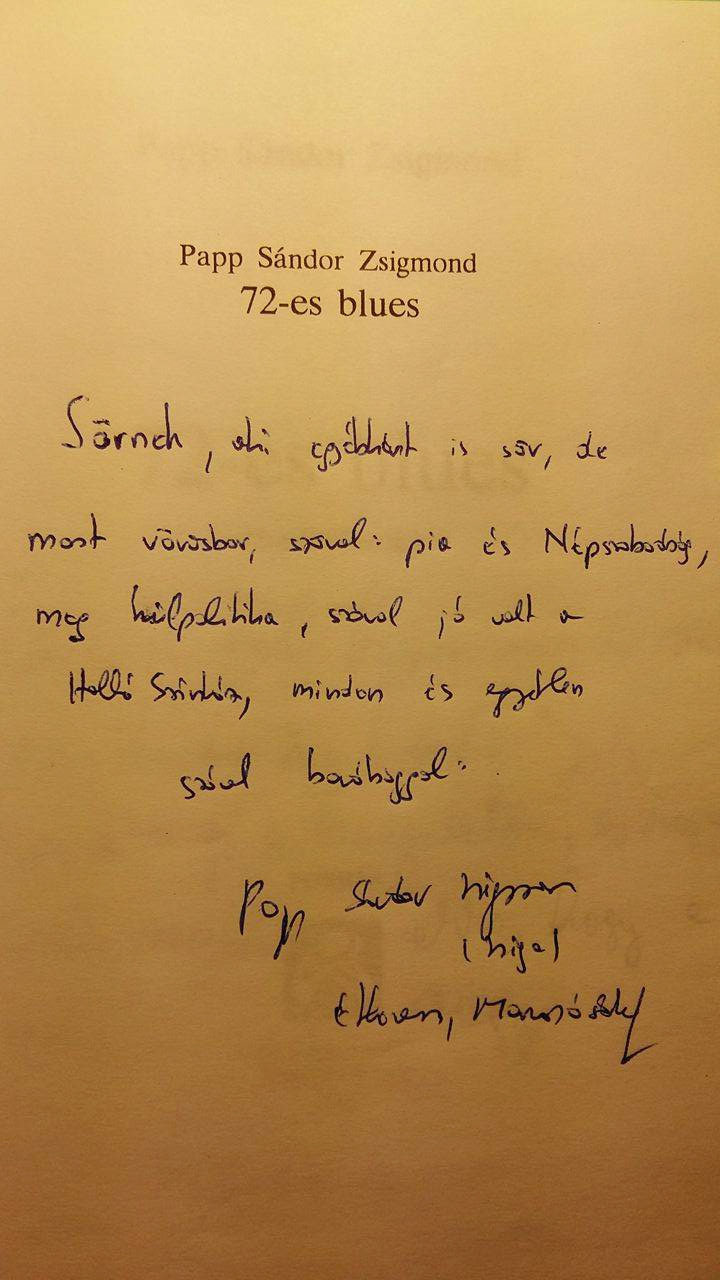 Papp Sándor Zsigmond
72-es blues
Sörnek, aki egyébként is sör, de
most vörösbor, szóval: pia és Népszabadság,
meg külpolitika, szóval jó volt a
Holló Színház, minden és egyetlen
szóval barátsággal:
Papp Sándor Zsigmond
(Zsiga)